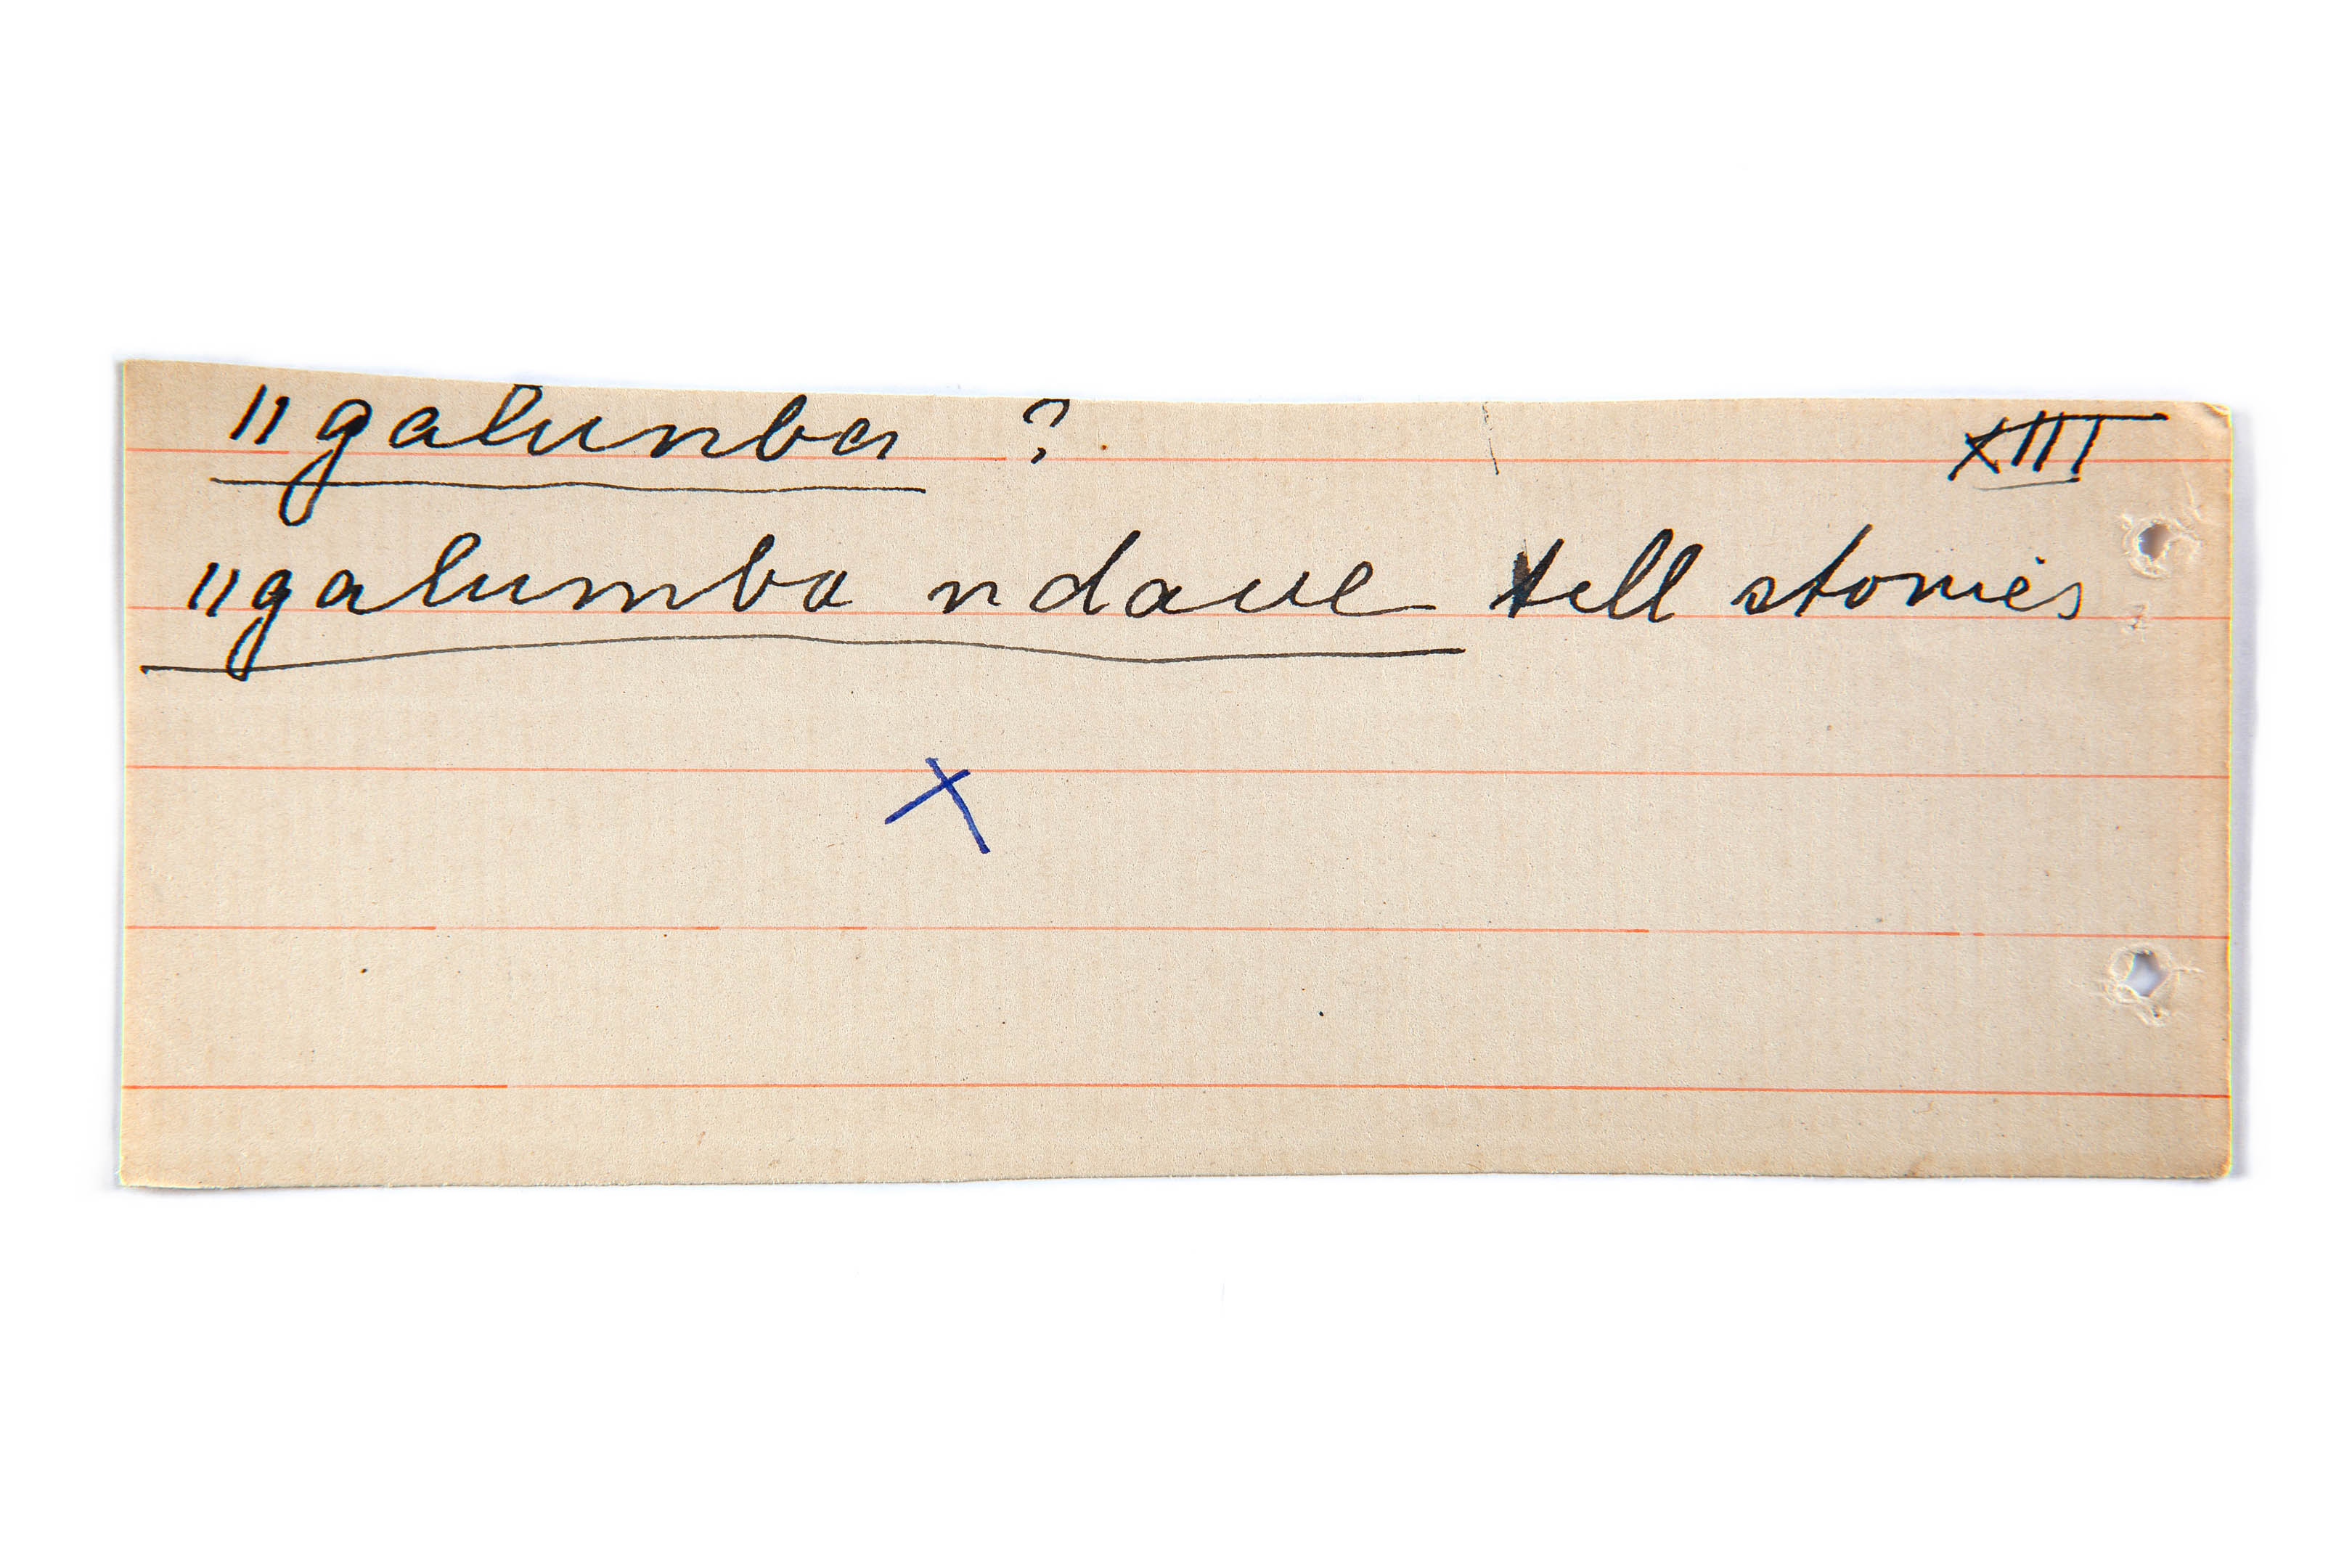 "galunba ? XIII
"galumba ndaue tell stories
x